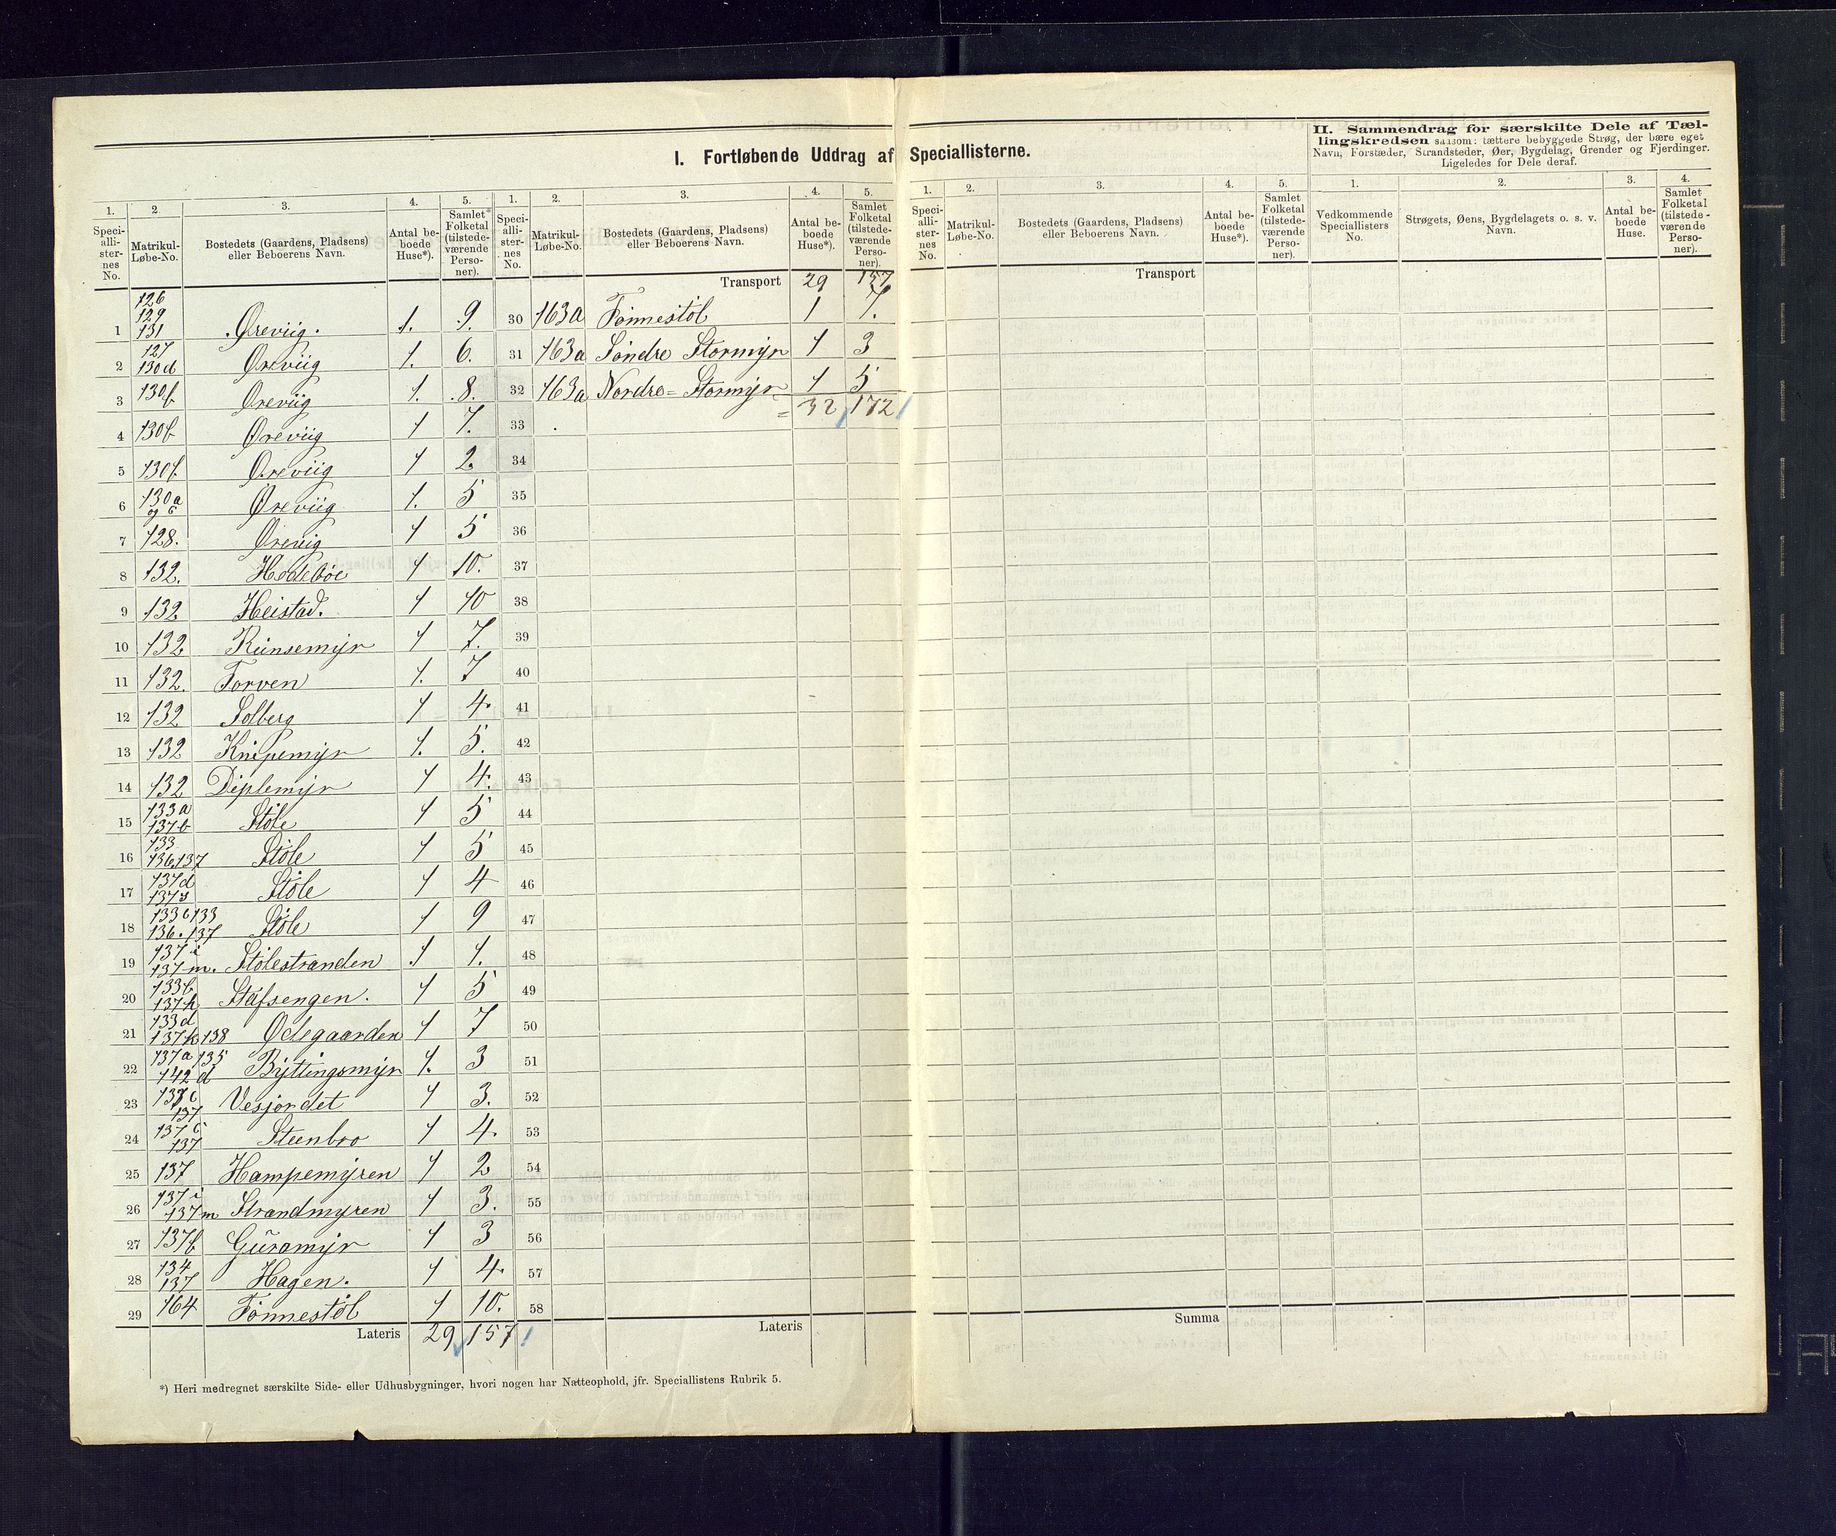 I. Fortløbende Uddrag af Speciallisterne.
II. Sammendrag for særskilte Dele af Tællingskredsen saasom: tættere bebyggede Strøg, der bære eget
Navn, Forstæder, Strandsteder, Øer, Bygdelag, Grender og Fjerdinger.
Ligeledes for Dele deraf.
1. 2. 3. 4. 5. 1. 2. 3. 4. 5. 1. 2. 3. 4. 5. 1. 2. 3. 4.
Speciallisternes No. Matrikul-Løbe-No. Bostedets (Gaardens, Pladsens) eller Beboerens Navn. Antal beboede Huse*). Samlet Folketal (tilstedeværende Personer).
Speciallisternes No. Matrikul-Løbe-No. Bostedets (Gaardens, Pladsens) eller Beboerens Navn. Antal beboede Huse*). Samlet Folketal (tilstedeværende Personer).
Speciallisternes No. Matrikul-Løbe-No. Bostedets (Gaardens, Pladsens) eller Beboerens Navn. Antal beboede Huse*). Samlet Folketal (tilstedeværende Personer).
Vedkommende Speciallisters No. Strøgets, Øens, Bygdelagets o. s. v. Navn. Antal beboede Huse. Samlet Folketal (tilstedeværende Personer).
Transport 29 157
Transport
1 126 129 131 Øreviig. 1. 9. 30 163a Tönnestöl 1 7.
2 127 130d Øreviig 1. 6. 31 163a Söndre Stormyr 1 3
3 130f Øreviig 1. 8. 32 163a Nordre=Stormyr 1 5
= 32 172
4 130b Øreviig 1 7. 33
5 130f. Øreviig 1 2. 34
6 130a og c Øreviig 1. 5 35
7 128. Örevig 1 5 36
8 132. Hödebøe 1 10. 37
9 132 Heistad. 1 10 38
10 132 Runsemyr 1 7. 39
11 132. Torven 1. 7 40
12 132 Solberg 1 4. 41
13 132 Knipemyr 1. 5. 42
14 132 Diplemyr 1 4. 43
15 133a 137b Støle 1 5 44
16 133 136,137 Støle 1 5 45
17 137d 137s Støle 1 4 46
18 133c 133 136.137 Støle 1 9 47
19 137i 137m. Stølestranden 1 1. 48
20 133b 137h Stafsengen. 1 5 49
21 133d 137k 138 Ödegaarden 1 7 50
22 137a 135 142d Byttingsmyr 1. 3 51
23 137 Vesjordet 1 3. 52
24 137c 137 Steenbro 1 4. 53
25 137 Hampemyren 1 2 54
26 137i 137m Strandmyren 1 3. 55
27 137f Guramyr 1 3 56
28 134 137 Hagen. 1 4. 57
29 164 Tönnestöl 1 10. 58
Lateris 29 157 Lateris
Summa
*) Heri medregnet særskilte Side- eller Udhusbygninger, hvori nogen har Natteophold, jfr. Speciallistens Rubrik 5.